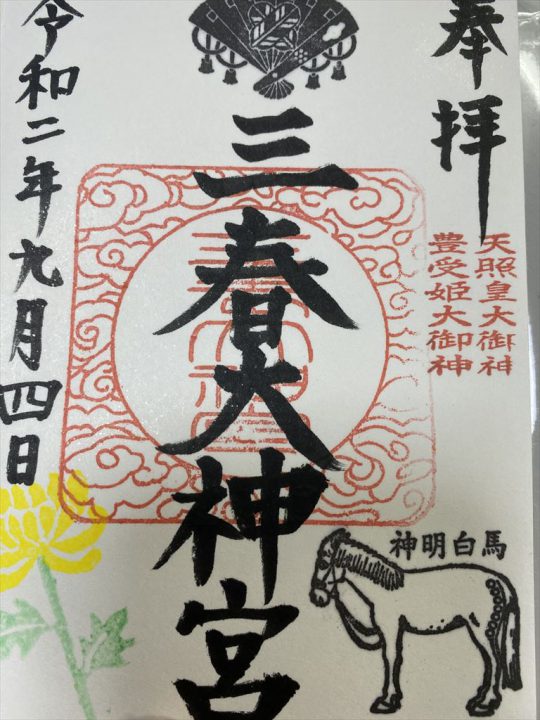 奉拝
天照皇大御神
豊受姫大御神
三春大神宮
令和二年九月四日
神明白馬